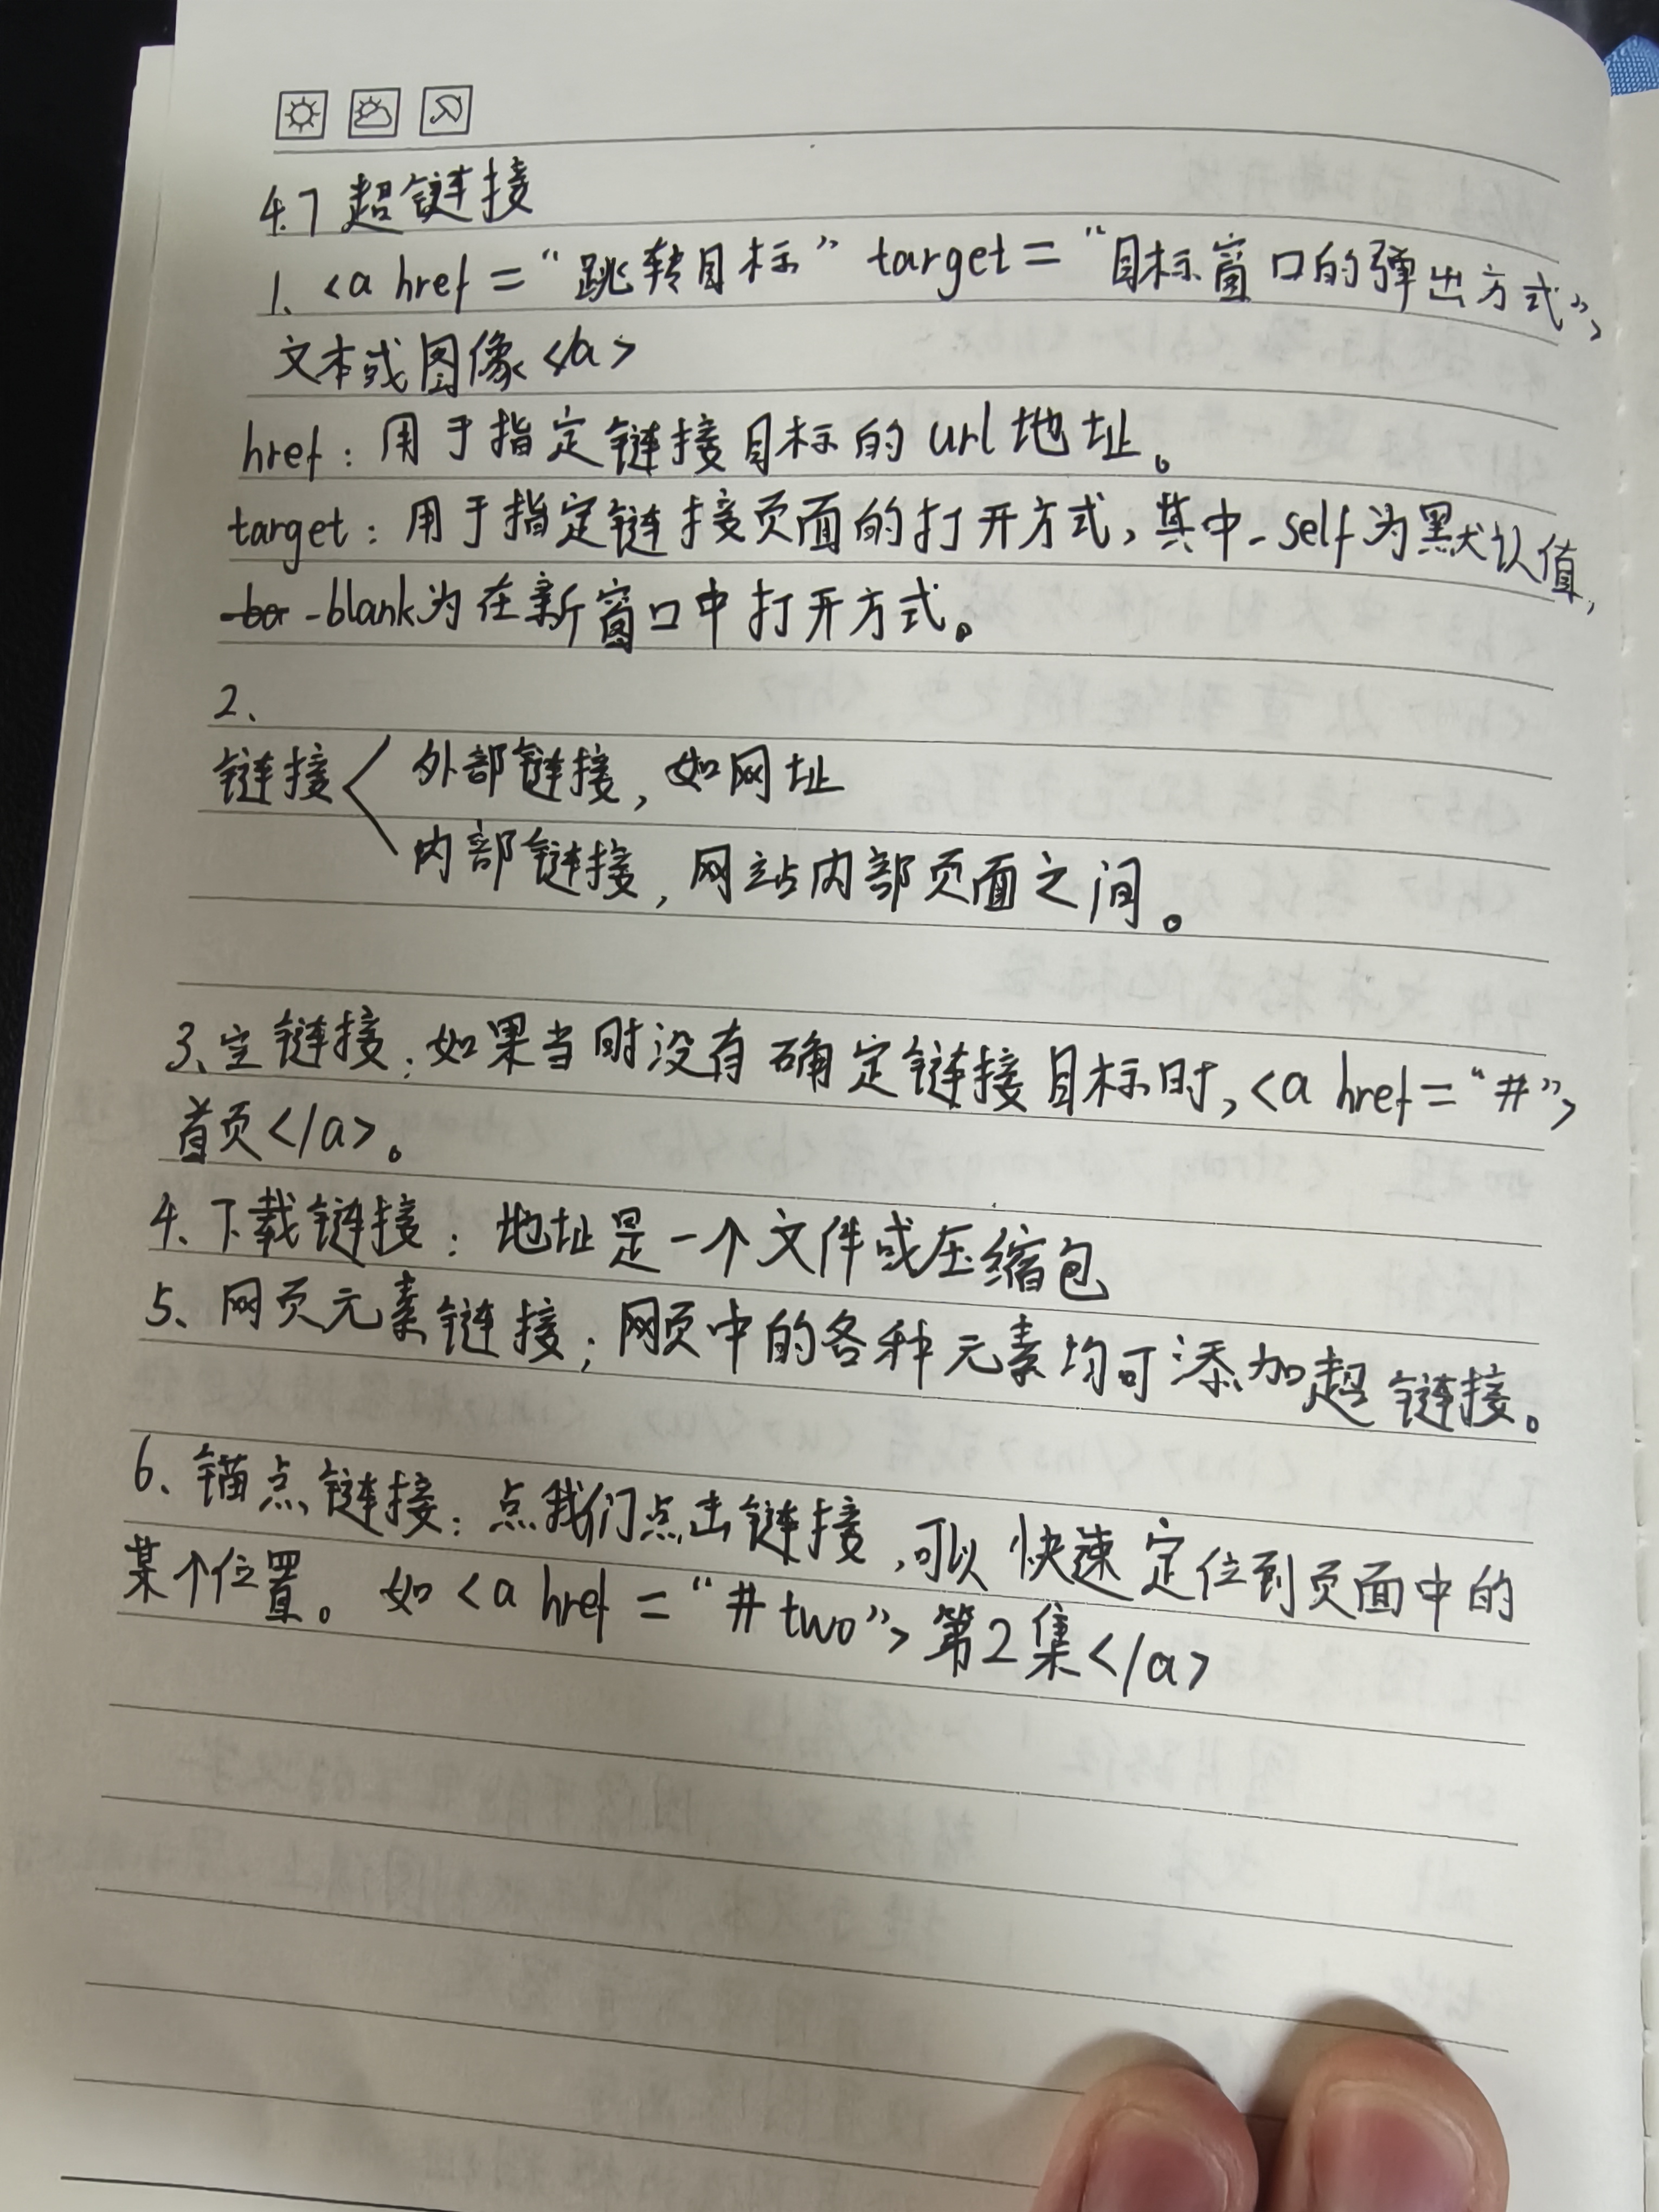 4.7 超链接
1、<a href = “跳转目标” target = “目标窗口的弹出方式”>
文本或图像</a>
href：用于指定链接目标的url地址。
target：用于指定链接页面的打开方式，其中_self为默认值，
_blank为在新窗口中打开方式。
2、
链接 外部链接，如网址
内部链接，网站内部页面之间。
3、空链接：如果当时没有确定链接目标时，<a href = “#”>
首页</a>。
4、下载链接：地址是一个文件或压缩包
5、网页元素链接：网页中的各种元素均可添加超链接。
6、锚点链接：点我们点击链接，可以快速定位到页面中的
某个位置。如<a href = “#two”>第2集</a>